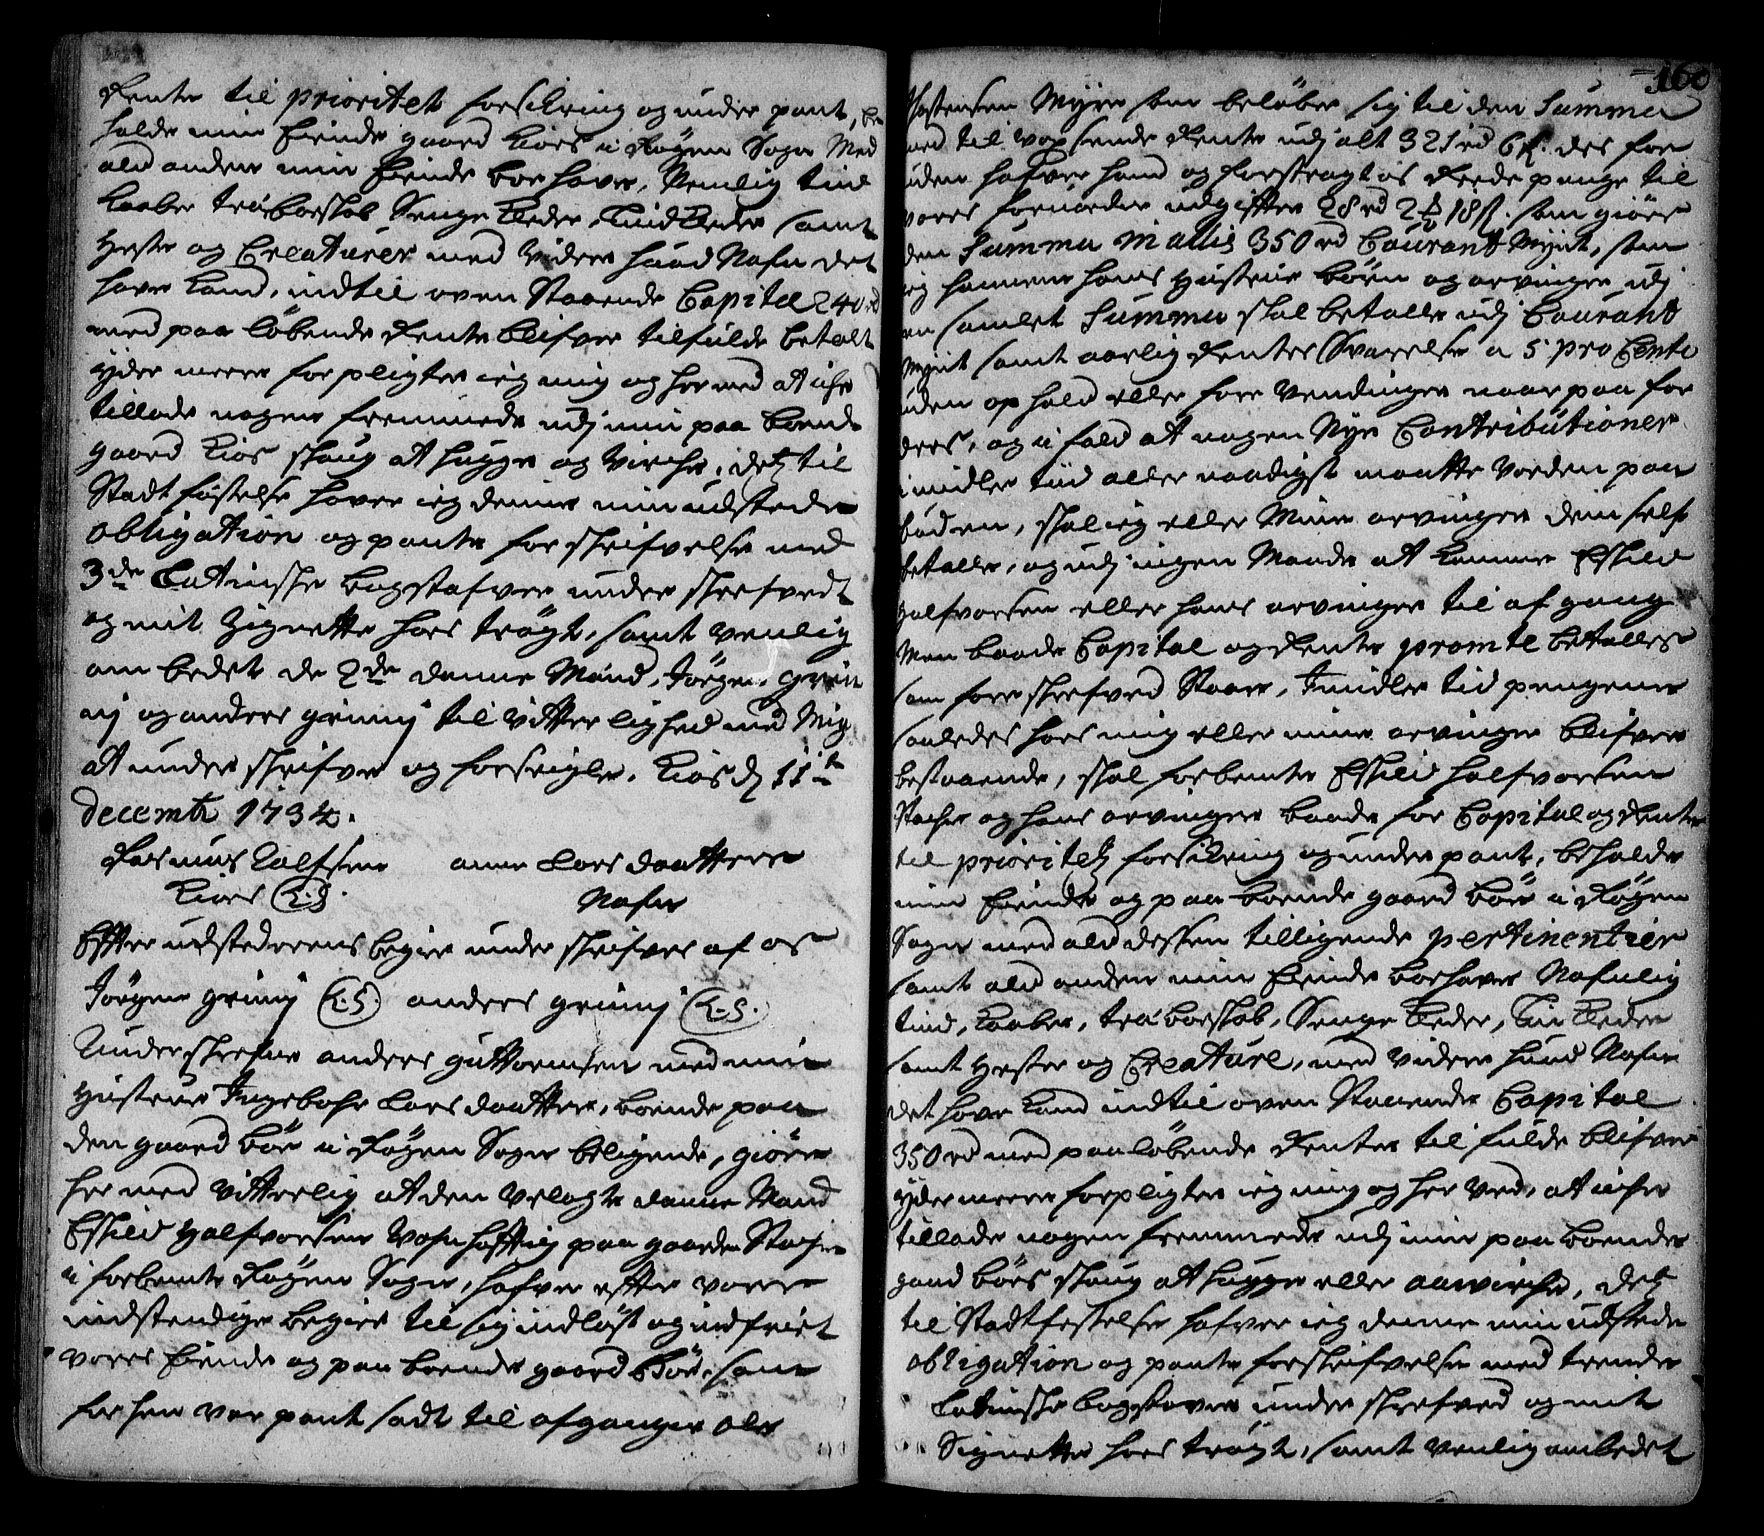 Rente til prioritet forsikring og under pant, be-
holde min Eiende gaard Kios i Røgen Sogn Med
ald anden min Eiende boehave, Nemlig tind
Kaaber træboeskab Senge Klæder, Liinklæder samt
Hester og Creaturer med videre huad Nafn det
have kand, indtil oven Staaende Capital 240 rd
med paa løbende Rente blifver tilfulde betalt
yder meere forpligter ieg mig og her med at iche
tillade nogen fremmede udj min paa boende
gaard Kios skoug at hugge og virche; detz til
Stadfæstelse haver ieg denne min udstæde
obligation og pante forskrifvelse med
3de Latinske bogstafver under skrefvedt
og mit Zignette hoes trøgt, samt venlig
om bedet de 2de danne Mænd, Jørgen Grim
nj og anders grimnj til vitterlighed med Mig
at under skrifve og forseigle. Kios d 11te
decembr 1734.
Rasmus Rolfsen anne Lars daatter
Kios (L:S). Nafn
Effter udstæderens begier under skrifves af os
Jørgen grimnj (L.S.) anders grimnj (L.S.)
Underskrefne anders guttormsen med min
Hustrue Ingebohr Lars daatter, boende paa
den gaard bøe i Røgen Sogn beligende, giøre
her med vitterlig at den velagte danne Mand
Eskild Halfvorsen vohnhafftig paa gaarden Stoche
i forbemte Røgen Sogn, hafver effter vores
indstendige begier til sig indløst og indfriet
vores Eiende og paa boende gaard Bøe, som
forhen var pant sadt til afgangne Ole
160
Thostensen Myre som beløber sig til den Summa
med til voxsende Rente udj alt 321 rd 6 s. des for
uden hafver hand og forstragt os Rede penge til
vores fornøden udgiffter 28 rd 2 ort 18 s. som giør
den Summa in allis 350 rd Courant Mynt, som
ieg hannem hans Hustrue børn og arvinger udj
en samlet Summa skal betalle udj Courant
Mynt samt aarlig Renter Svarelse a 5 pro Cento
uden ophold eller fore vendinger naar paa for
dres, og i fald at nogen Nye Contributioner
imidler tiid aller naadigst maatte vorden paa
buden, skal ieg eller Mine arvinger dem self
betalle, og udj ingen Maade at komme Eskild
Halfvorsen eller hans arvinger til af gang
Men baade Capital og Rente promte betalles
som fore skrefved Staar, Imidler tid pengene
saaledes hoes mig eller mine arvinger blifver
bestaaende, skal forbemte Eskild halfvorsen
Stoche og hans arvinger baade for Capital og Rente
til prioritetz forsikring og under pant, beholde
min Eiende og paa boende gaard bøe i Røgen
Sogn med ald dessen tilligende pertinentier
samt ald anden min Eiende boehave Nafnlig
tind, kaaber, træ boeskab, Senge klæder, Lin klæder
samt Hester og Creature, med videre huad Nafn
det have kand indtil oven Staaende Capital
350 rd med paaløbende Renter til fulde blifver
yder meere forpligter ieg mig og her ved, at iche
tillade nogen fremmede udj min paa boende
gaard bøes skoug at hugge eller aawirche, detz
til Stadfestelse hafver ieg denne min udstæde
obligation og pante forskrifvelse med trende
Latinske bogstaver under skrefved og mit
Signette hoes trøgt, samt venlig ombedet